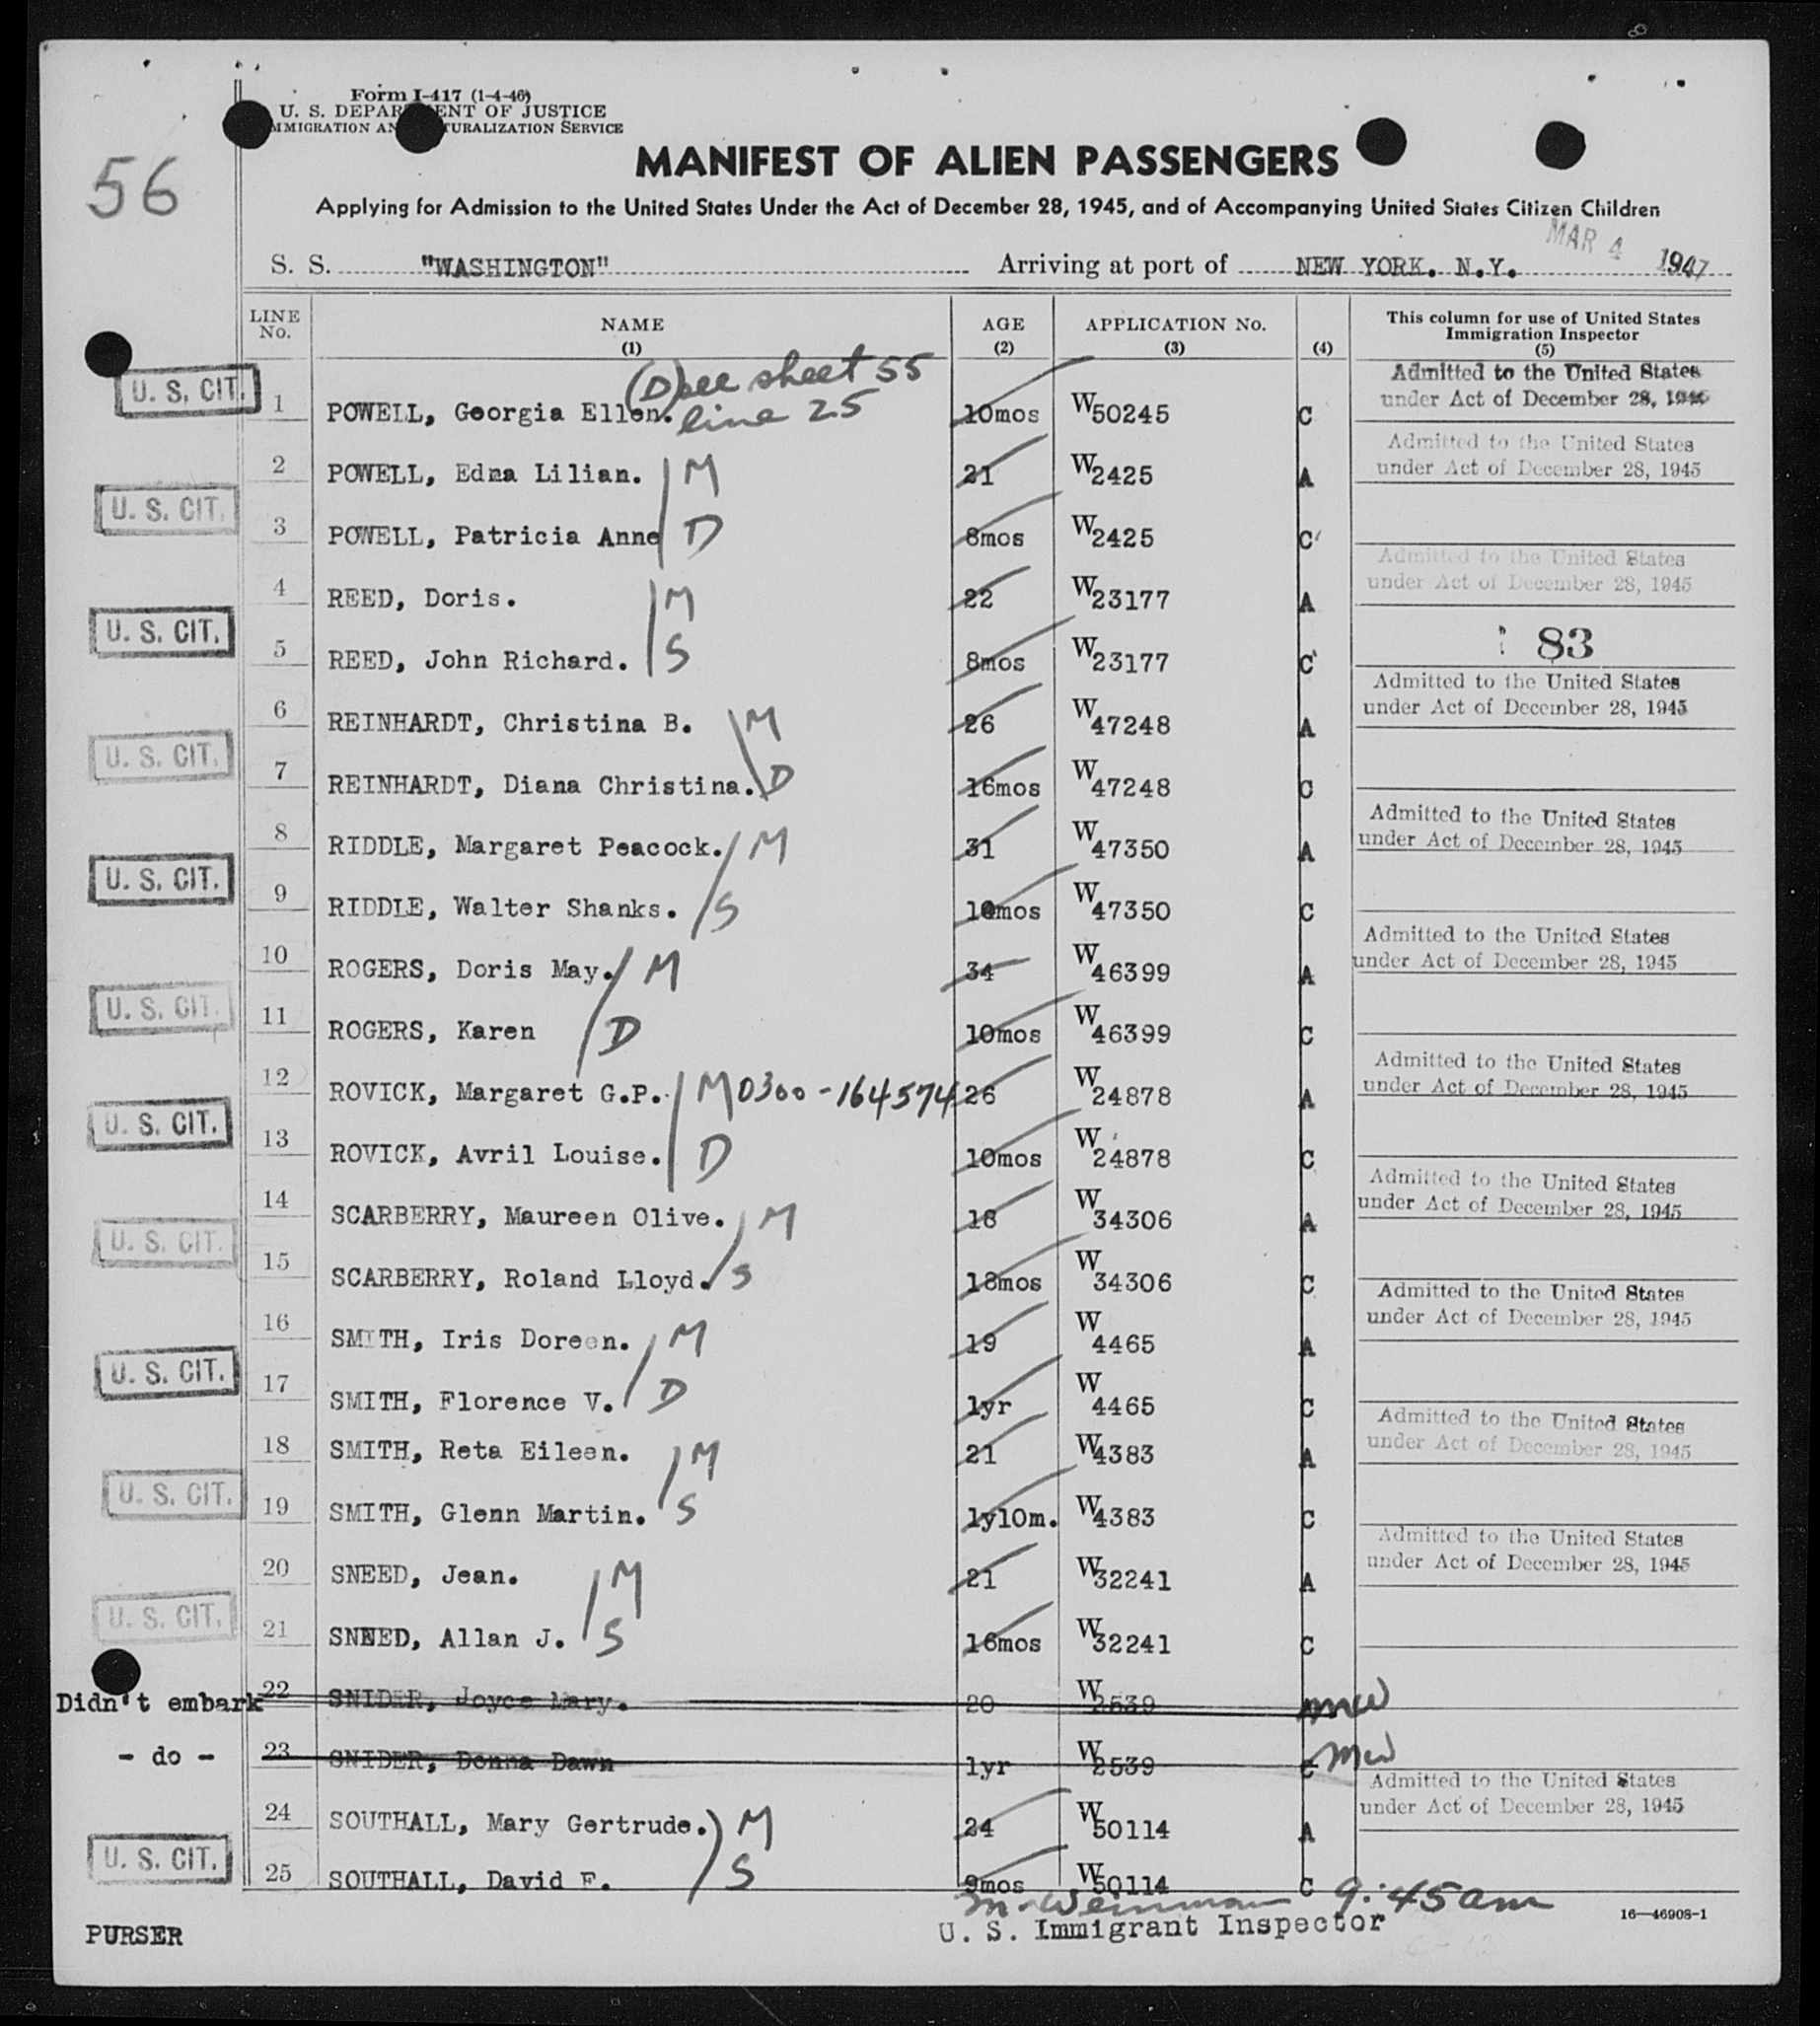 Form I-417 (1-4-46)
U. S. DEPAR ENT OF JUSTICE
MMIGRATION AN TURALIZATION SERVICE
56
MANIFEST OF ALIEN PASSENGERS
Applying for Admission to the United States Under the Act of December 28, 1945, and of Accompanying United States Citizen Children
MAR 4
S. S. "WASHINGTON" Arriving at port of NEW YORK. N.Y. 1947
LINE No. NAME (1) AGE (2) APPLICATION No. (3) (4) This column for use of United States Immigration Inspector (5)
(D) see sheet 55
line 25
U. S. CIT. 1 POWELL, Georgia Ellen. 10mos W50245 C Admitted to the United States under Act of December 28, 1945
2 POWELL, Edna Lilian. M 21 W2425 A Admitted to the United States under Act of December 28, 1945
U. S. CIT. 3 POWELL, Patricia Anne D 8mos W2425 C
4 REED, Doris. M 22 W23177 A Admitted to the United States under Act of December 28, 1945
U. S. CIT. 5 REED, John Richard. S 8mos W23177 C 83
6 REINHARDT, Christina B. M 26 W47248 A Admitted to the United States under Act of December 28, 1945
U. S. CIT. 7 REINHARDT, Diana Christina. D 16mos W47248 C
8 RIDDLE, Margaret Peacock. M 31 W47350 A Admitted to the United States under Act of December 28, 1945
U. S. CIT. 9 RIDDLE, Walter Shanks. S 10mos W47350 C
10 ROGERS, Doris May. M 34 W46399 A Admitted to the United States under Act of December 28, 1945
U. S. CIT. 11 ROGERS, Karen D 10mos W46399 C
12 ROVICK, Margaret G.P. M 0300-164574 26 W24878 A Admitted to the United States under Act of December 28, 1945
U. S. CIT. 13 ROVICK, Avril Louise. D 10mos W24878 C
14 SCARBERRY, Maureen Olive. M 18 W34306 A Admitted to the United States under Act of December 28, 1945
U. S. CIT. 15 SCARBERRY, Roland Lloyd. S 18mos W34306 C
16 SMITH, Iris Doreen. M 19 W4465 A Admitted to the United States under Act of December 28, 1945
U. S. CIT. 17 SMITH, Florence V. D 1yr W4465 C
18 SMITH, Reta Eileen. M 21 W4383 A Admitted to the United States under Act of December 28, 1945
U. S. CIT. 19 SMITH, Glenn Martin. S 1y10m. W4383 C
20 SNEED, Jean. M 21 W32241 A Admitted to the United States under Act of December 28, 1945
U. S. CIT. 21 SNEED, Allan J. S 16mos W32241 C
Didn't embark 22 SNIDER, Joyce Mary. 20 W2539 MW
- do - 23 SNIDER, Donna Dawn 1yr W2539 C MW
24 SOUTHALL, Mary Gertrude. M 24 W50114 A Admitted to the United States under Act of December 28, 1945
U. S. CIT. 25 SOUTHALL, David F. S 9mos W50114 C
M. Weinman 9:45 am
PURSER U. S. Immigrant Inspector 16—46908-1